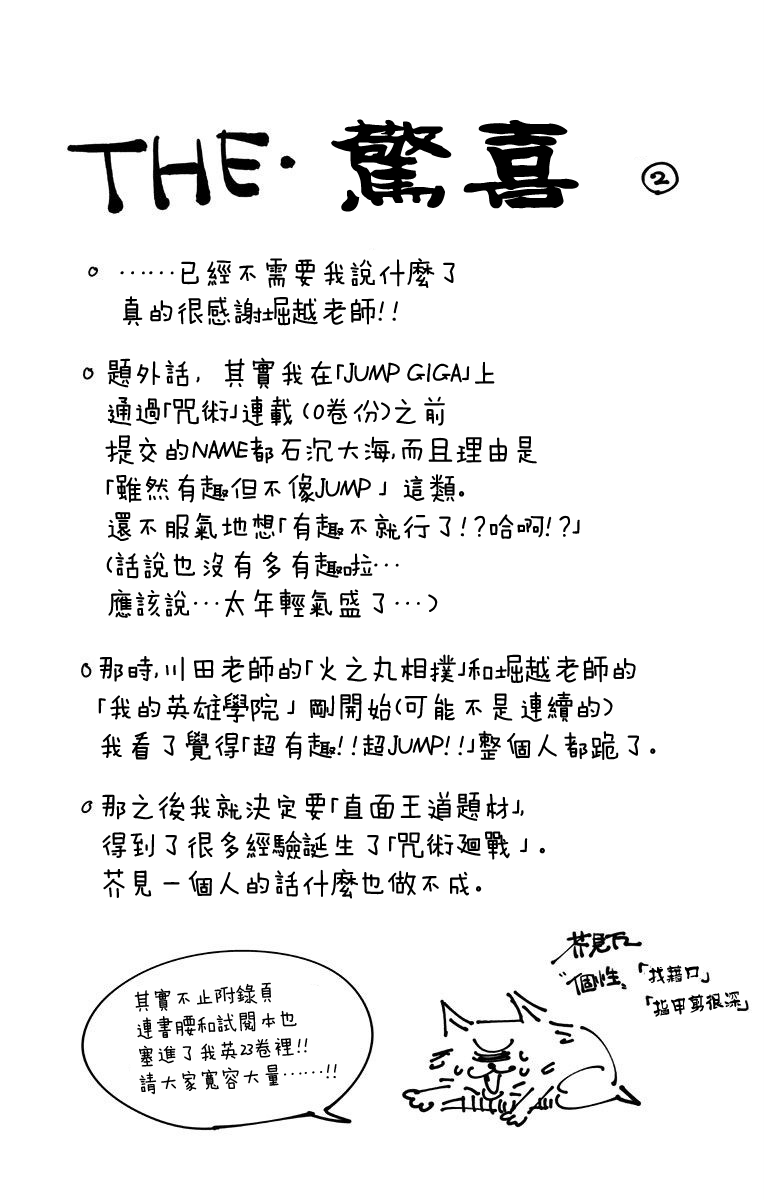 THE・驚喜 ②
。……已經不需要我說什麼了
真的很感謝堀越老師!!
。題外話, 其實我在「JUMP GIGA」上
通過「咒術」連載(0卷份)之前
提交的NAME都石沉大海,而且理由是
「雖然有趣但不像JUMP」這類。
還不服氣地想「有趣不就行了!?哈啊!?」
(話說也沒有多有趣啦…
應該說…太年輕氣盛了…)
。那時,川田老師的「火之丸相撲」和堀越老師的
「我的英雄學院」剛開始(可能不是連續的)
我看了覺得「超有趣!!超JUMP!!」整個人都跪了。
。那之後我就決定要「直面王道題材」,
得到了很多經驗誕生了「咒術廻戰」。
芥見一個人的話什麼也做不成。
芥見下々
"個性"「找藉口」
「指甲剪很深」
其實不止附錄頁
連書腰和試閱本也
塞進了我英23卷裡!!
請大家寬容大量……!!